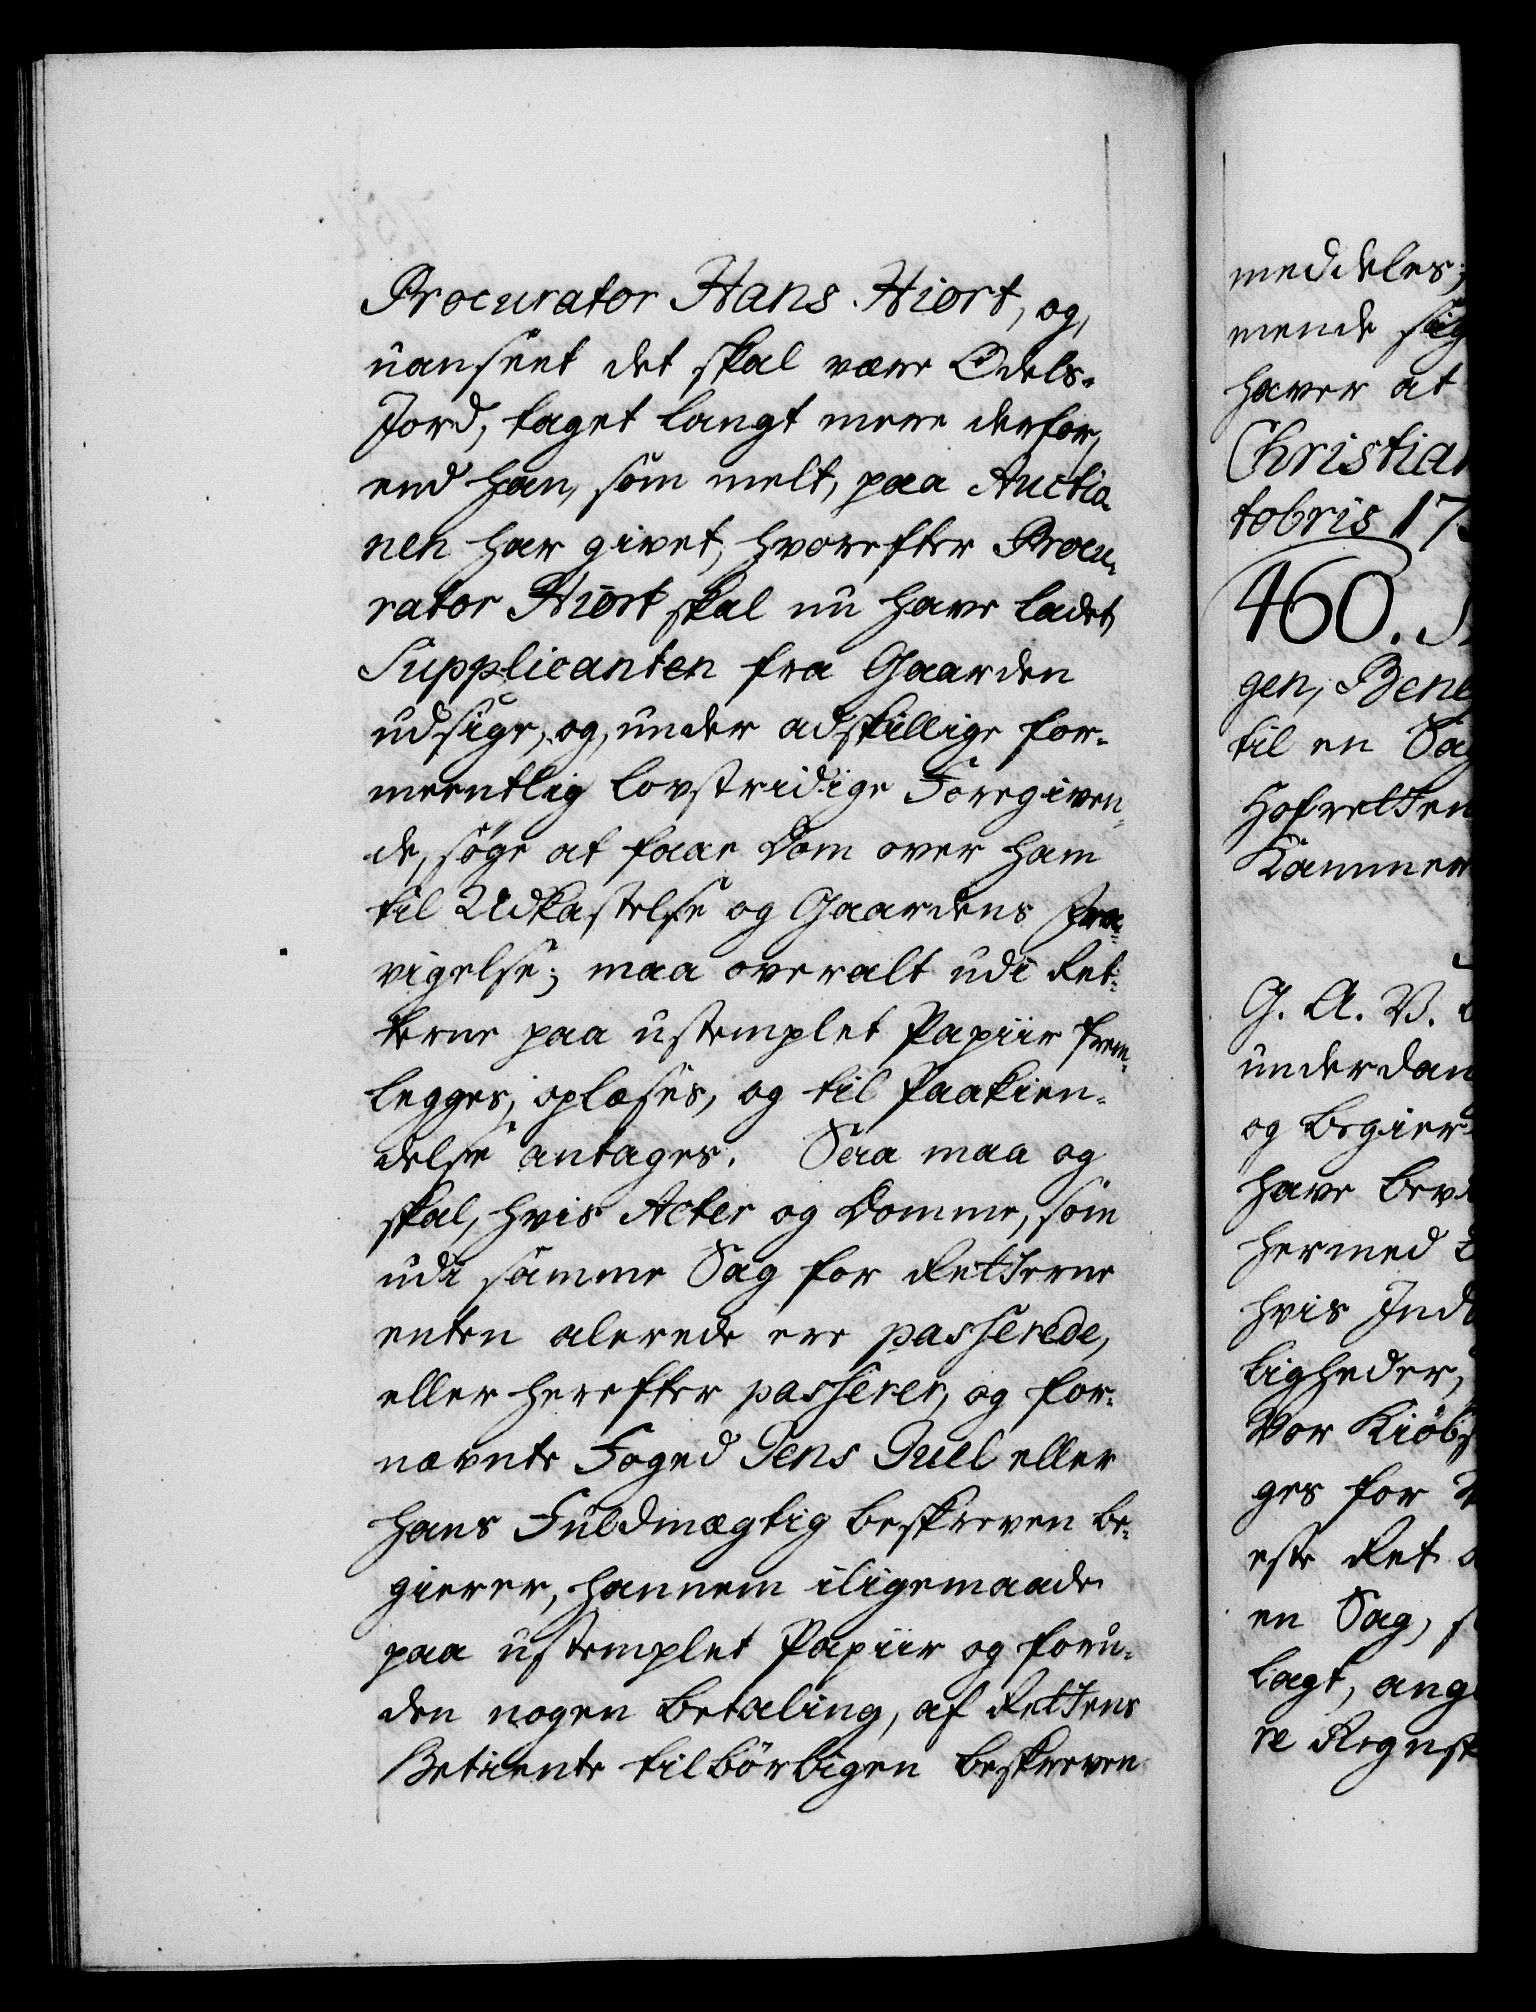 Procurator Hans Hiort, og,
uanseet det skal være Odels-
Jord, taget langt mere derfor,
end han, som melt, paa Auctio-
nen har givet, hvorefter Procu-
rator Hiort skal nu have ladet
Supplicanten fra Gaarden
udsige, og, under adskillige for-
meentlig lovstridige Foregiven-
de, søge at faae Dom over ham
til Udkastelse og Gaardens fra-
vigelse; maa overalt udi Ret-
terne paa ustemplet Papiir frem-
legges, oplæses, og til Paakien-
delse antages. Saa maa og
skal, hvis Acter og Domme, som
udi samme Sag for Retterne
enten alerede ere passerede,
eller herefter passerer, og for-
nævnte Foged Jens Juel eller
hans Fuldmægtig beskreven be-
gierer, hannem iligemaade
paa ustemplet Papiir og foru-
den nogen Betaling, af Rettens
Betiente tilbørligen beskreven
meddeles;
mende sig
haver at
Christian
tobris 17
460.
gen, Bene
til en Sag
Hofretten
Kammer
G. A. V.
underdan
og begier
have bev
hermed
hvis Ind
ligheder,
Vor Kiöb
ges for
este Ret
en Sag,
lagt, ang
re Regnsk